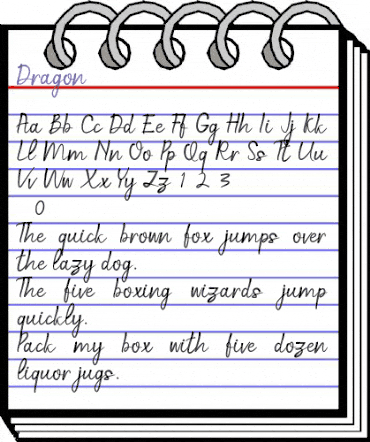 Dragon
Aa Bb Cc Dd Ee Ff Gg Hh Ii Jj Kk
Ll Mm Nn Oo Pp Qq Rr Ss Tt Uu
Vv Ww Xx Yy Zz 1 2 3
0
The quick brown fox jumps over
the lazy dog.
The five boxing wizards jump
quickly.
Pack my box with five dozen
liquor jugs.